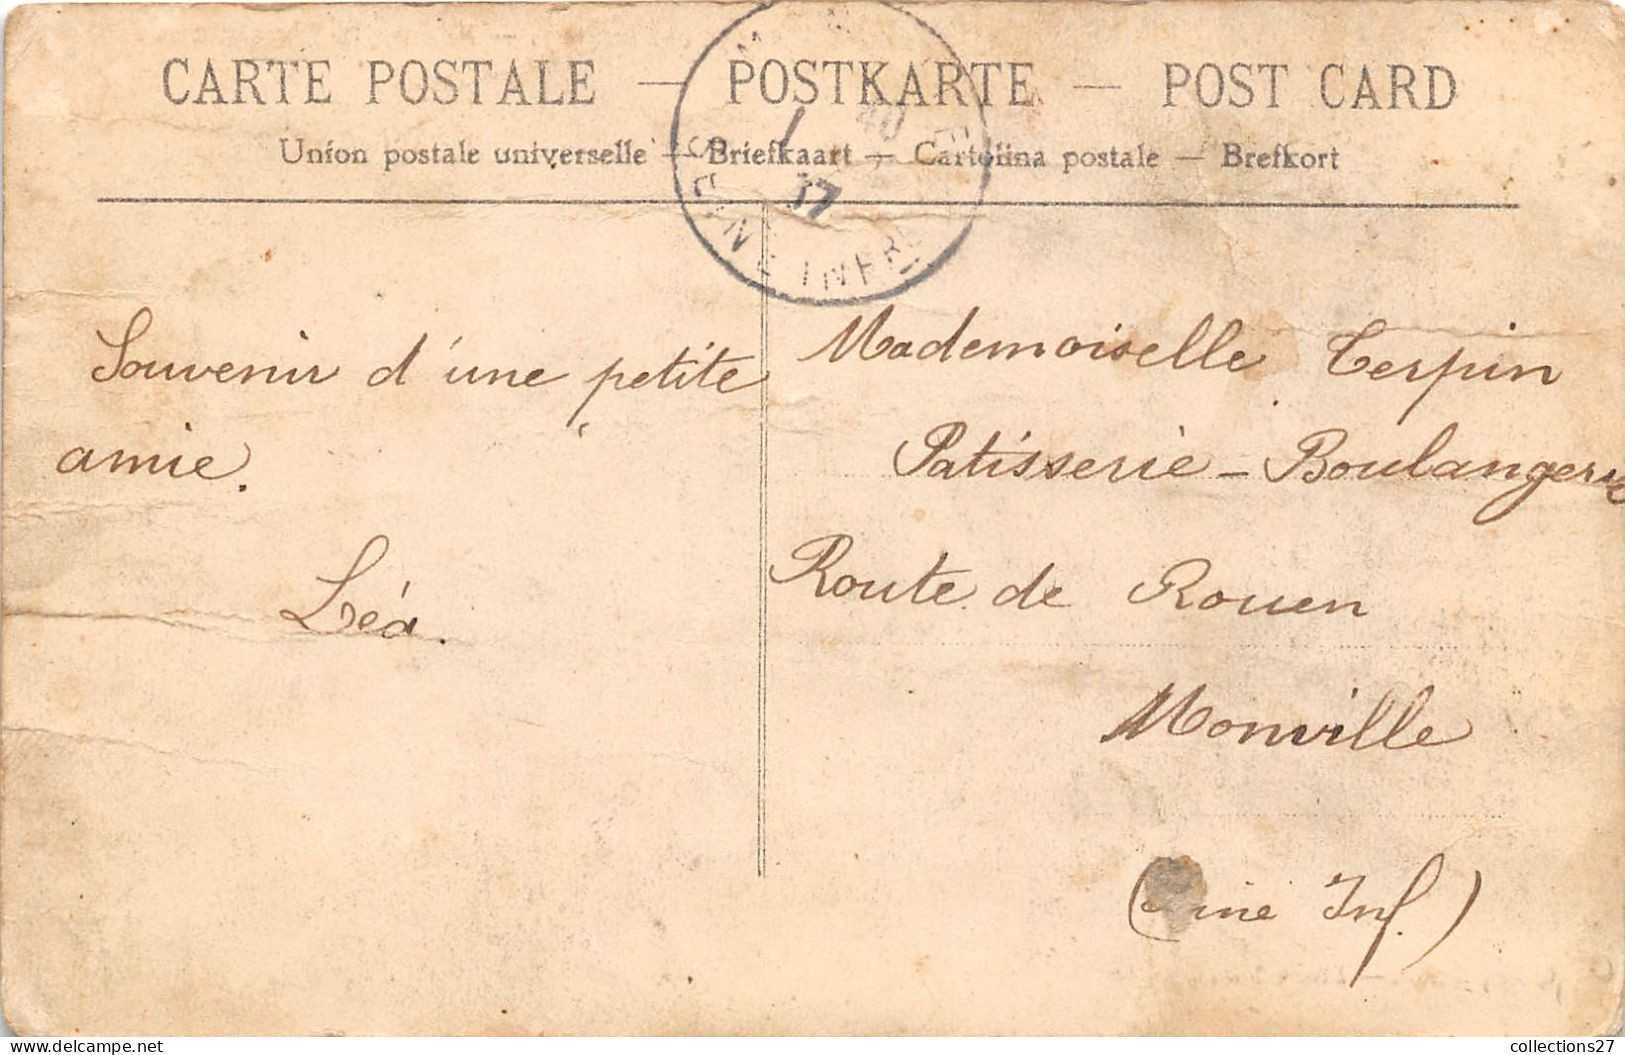 CARTE POSTALE — POSTKARTE — POST CARD
Union postale universelle — Briefkaart — Cartolina postale — Brefkort
SEINE INFRE
Souvenir d'une petite
amie.
Léa.
Mademoiselle Terpin
Patisserie - Boulangerie
Route de Rouen
Monville
Inf.)
collections27